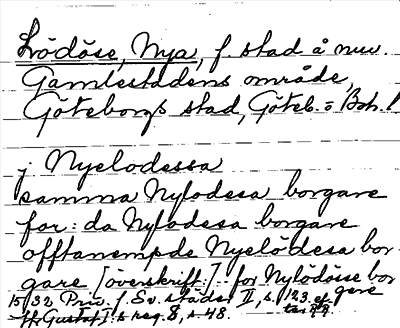 Lödöse, Nya, f. stad å nuv.
Gamlestadens område,
Göteborgs stad, Göteb. o Boh. l
j Nyelodessa
samma Nylodesa borgare
for: da Nylodesa borgare
offtanempde Nyelödesa bor-
gare [överskrift:] for Nylödose bor
gare
15/32 Priv. f. Sv. städer II, s. 123. ef.
Gustaf I:s reg. 8, s. 48.